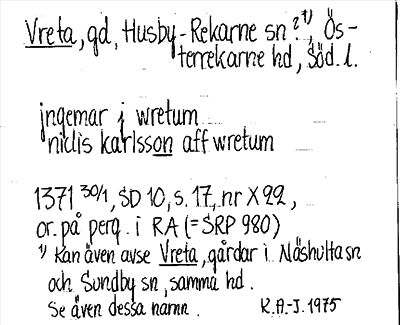 Vreta, gd, Husby-Rekarne sn ? 1), Ös-
terrekarne hd, Söd. l.
jngemar j wretum
niclis karlsson aff wretum
1371 30/1, SD 10, s. 17, nr X 22,
or. på perg. i RA (= SRP 980)
1) Kan även avse Vreta, gårdar i Näshulta sn
och Sundby sn, samma hd.
Se även dessa namn.
K.A.-J. 1975